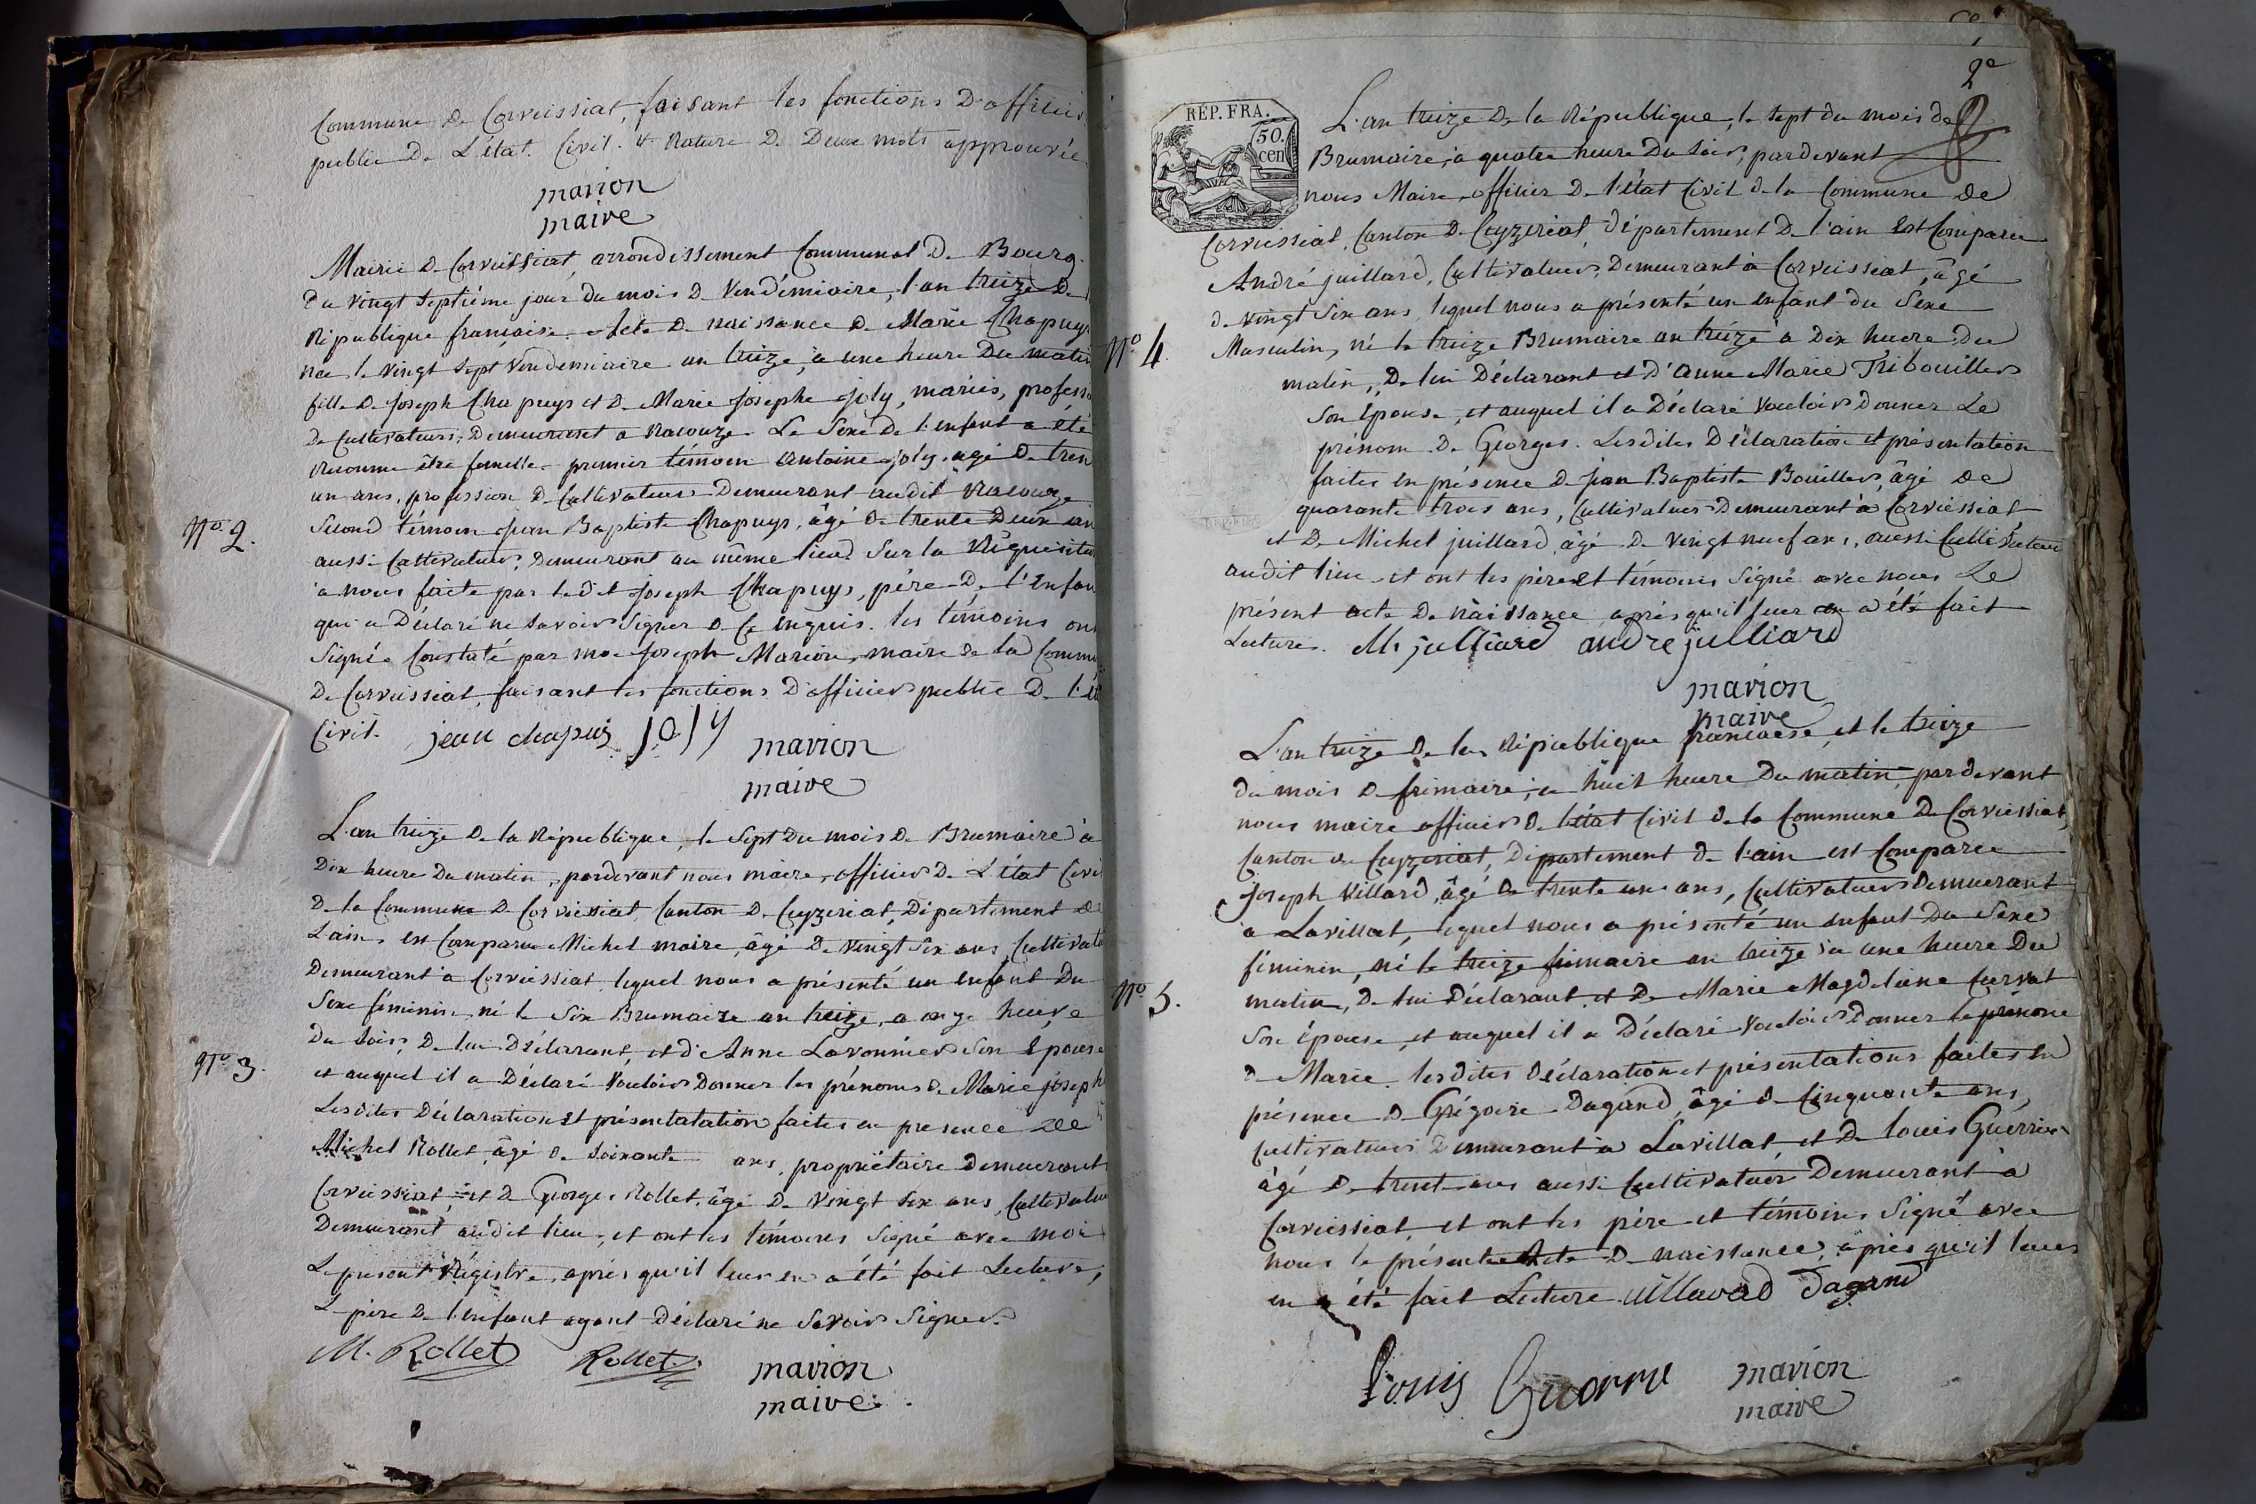 Commune de Corveissiat, faisant les fonctions d'officier
public de L'état Civil. & Rature de Deux mots approuvée
marion
maire
Mairie de Corveissiat, arrondissement Communal de Bourg.
Du vingt septiéme jour du mois de Vendémiaire, l'an treize de
République francaise. Acte de naissance de Marie Chapuys
née le vingt sept Vendemiaire an treize, à une heure du matin
fille de Joseph Chapuys et de Marie Josephe Joly, mariés, profession
de Cultivateurs, Demeurant a Racouze. Le Sexe de l'enfant a été
reconnu être femelle. premier témoin Antoine Joly, agé de trente
un ans, profession de Cultivateur Demeurant audit Racouze
No. 2. Second témoin Jean Baptiste Chapuys, âgé de trente Deux an
aussi Cultivateur, Demeurant au même lieu. Sur la Réquisition
à nous faite par ledit Joseph Chapuys, père de l'Enfan
qui a Déclaré ne savoir signer de ce enquis. les témoins ont
Signé. Constaté par moi Joseph Marion, maire de la Commune
De Corveissiat, faisant les fonctions D'officier public de l'ét
Civil. jean chapuis joly marion
maire
L'an treize de la République, le Sept Du mois de Brumaire à
Dix heure Du matin, pardevant nous maire, officier De L'état Civil
De la Commune de Corveissiat, Canton de Ceyzeriat, Département de
L'ain, est Comparu Michel maire, âgé de vingt six ans, Cultivate
Demeurant à Corveissiat, lequel nous a présenté un enfant Du
Sexe féminin, né le Six Brumaire an treize, a onze heure
No 3. Du soir, De lui Déclarant, et d'Anne Lavonnier Son Epouse
et auquel il a Déclaré Vouloir Donner les prénoms de Marie joseph
Lesdites Déclaration et présentatation faites en presence de
Michel Rollet, âgé de soixante ans, propriétaire demeurant
Corveissiat, et de George Rollet, âgé de vingt six ans, Cultivateur
Demeurant audit lieu, et ont les témoins Signé avec moi
Le présent Régistre, après qu'il leur en a été fait Lecture,
Le père de l'enfant ayant Déclaré ne Savoir Signer.
M. Rollet Rollet marion
maire
2e
RÉP. FRA.
50.
cen
L'an treize de la République, le sept du mois de
Brumaire, à quatre heure Du soir, pardevant
nous Maire, officier de l'état Civil de la Commune de
Corveissiat, Canton de Ceyzeriat, département de l'ain est Comparu
André juillard, Cultivateur, Demeurant à Corveissiat, âgé
de vingt six ans, lequel nous a présenté un enfant du Sexe
No 4. Masculin, né le treize Brumaire an treize à Dix heure du
matin, De lui Déclarant et d'anne Marie Tribouillet
Son Epouse, et auquel il a Déclaré Vouloir Donner Le
prénom de Georges. Lesdites Déclaration et présentation
faites en présence de jean Baptiste Bouiller, âgé de
quarante trois ans, Cultivateur Demeurant à Corveissiat
et de Michel juillard, âgé de vingt neuf ans, aussi Cultivateur
audit lieu, et ont les père et témoins Signé avec nous Le
présent acte de naissance, après qu'il leur en a été fait
Lecture. M. julliard andre julliard
marion
maire
L'an treize de la République francaise, et le treize
du mois de frimaire, à huit heure Du matin, pardevant
nous maire officier de l'état Civil de la Commune de Corveissiat,
Canton de Ceyzeriat, Département de l'ain est Comparu
Joseph Villard, âgé de trente un ans, Cultivateur Demeurant
a Lavillat, lequel nous a présenté un enfant Du Sexe
féminin, né le treize frimaire an treize à une heure Du
No 5. matin, De lui Déclarant et de Marie Magdelaine
Son Epouse, et auquel il a Déclaré Vouloir Donner le prénom
de Marie. lesdites Déclaration et présentations faites en
présence de Grégoire Dagand, âgé de Cinquante ans,
Cultivateur Demeurant à Lavillat, et de Louis Guerrier
âgé de trente ans aussi Cultivateur Demeurant à
Corveissiat, et ont les père et témoins Signé avec
nous le présent Acte de naissance, après qu'il leur
en a été fait Lecture. Villavard Dagand
Louis Guorru marion
maire